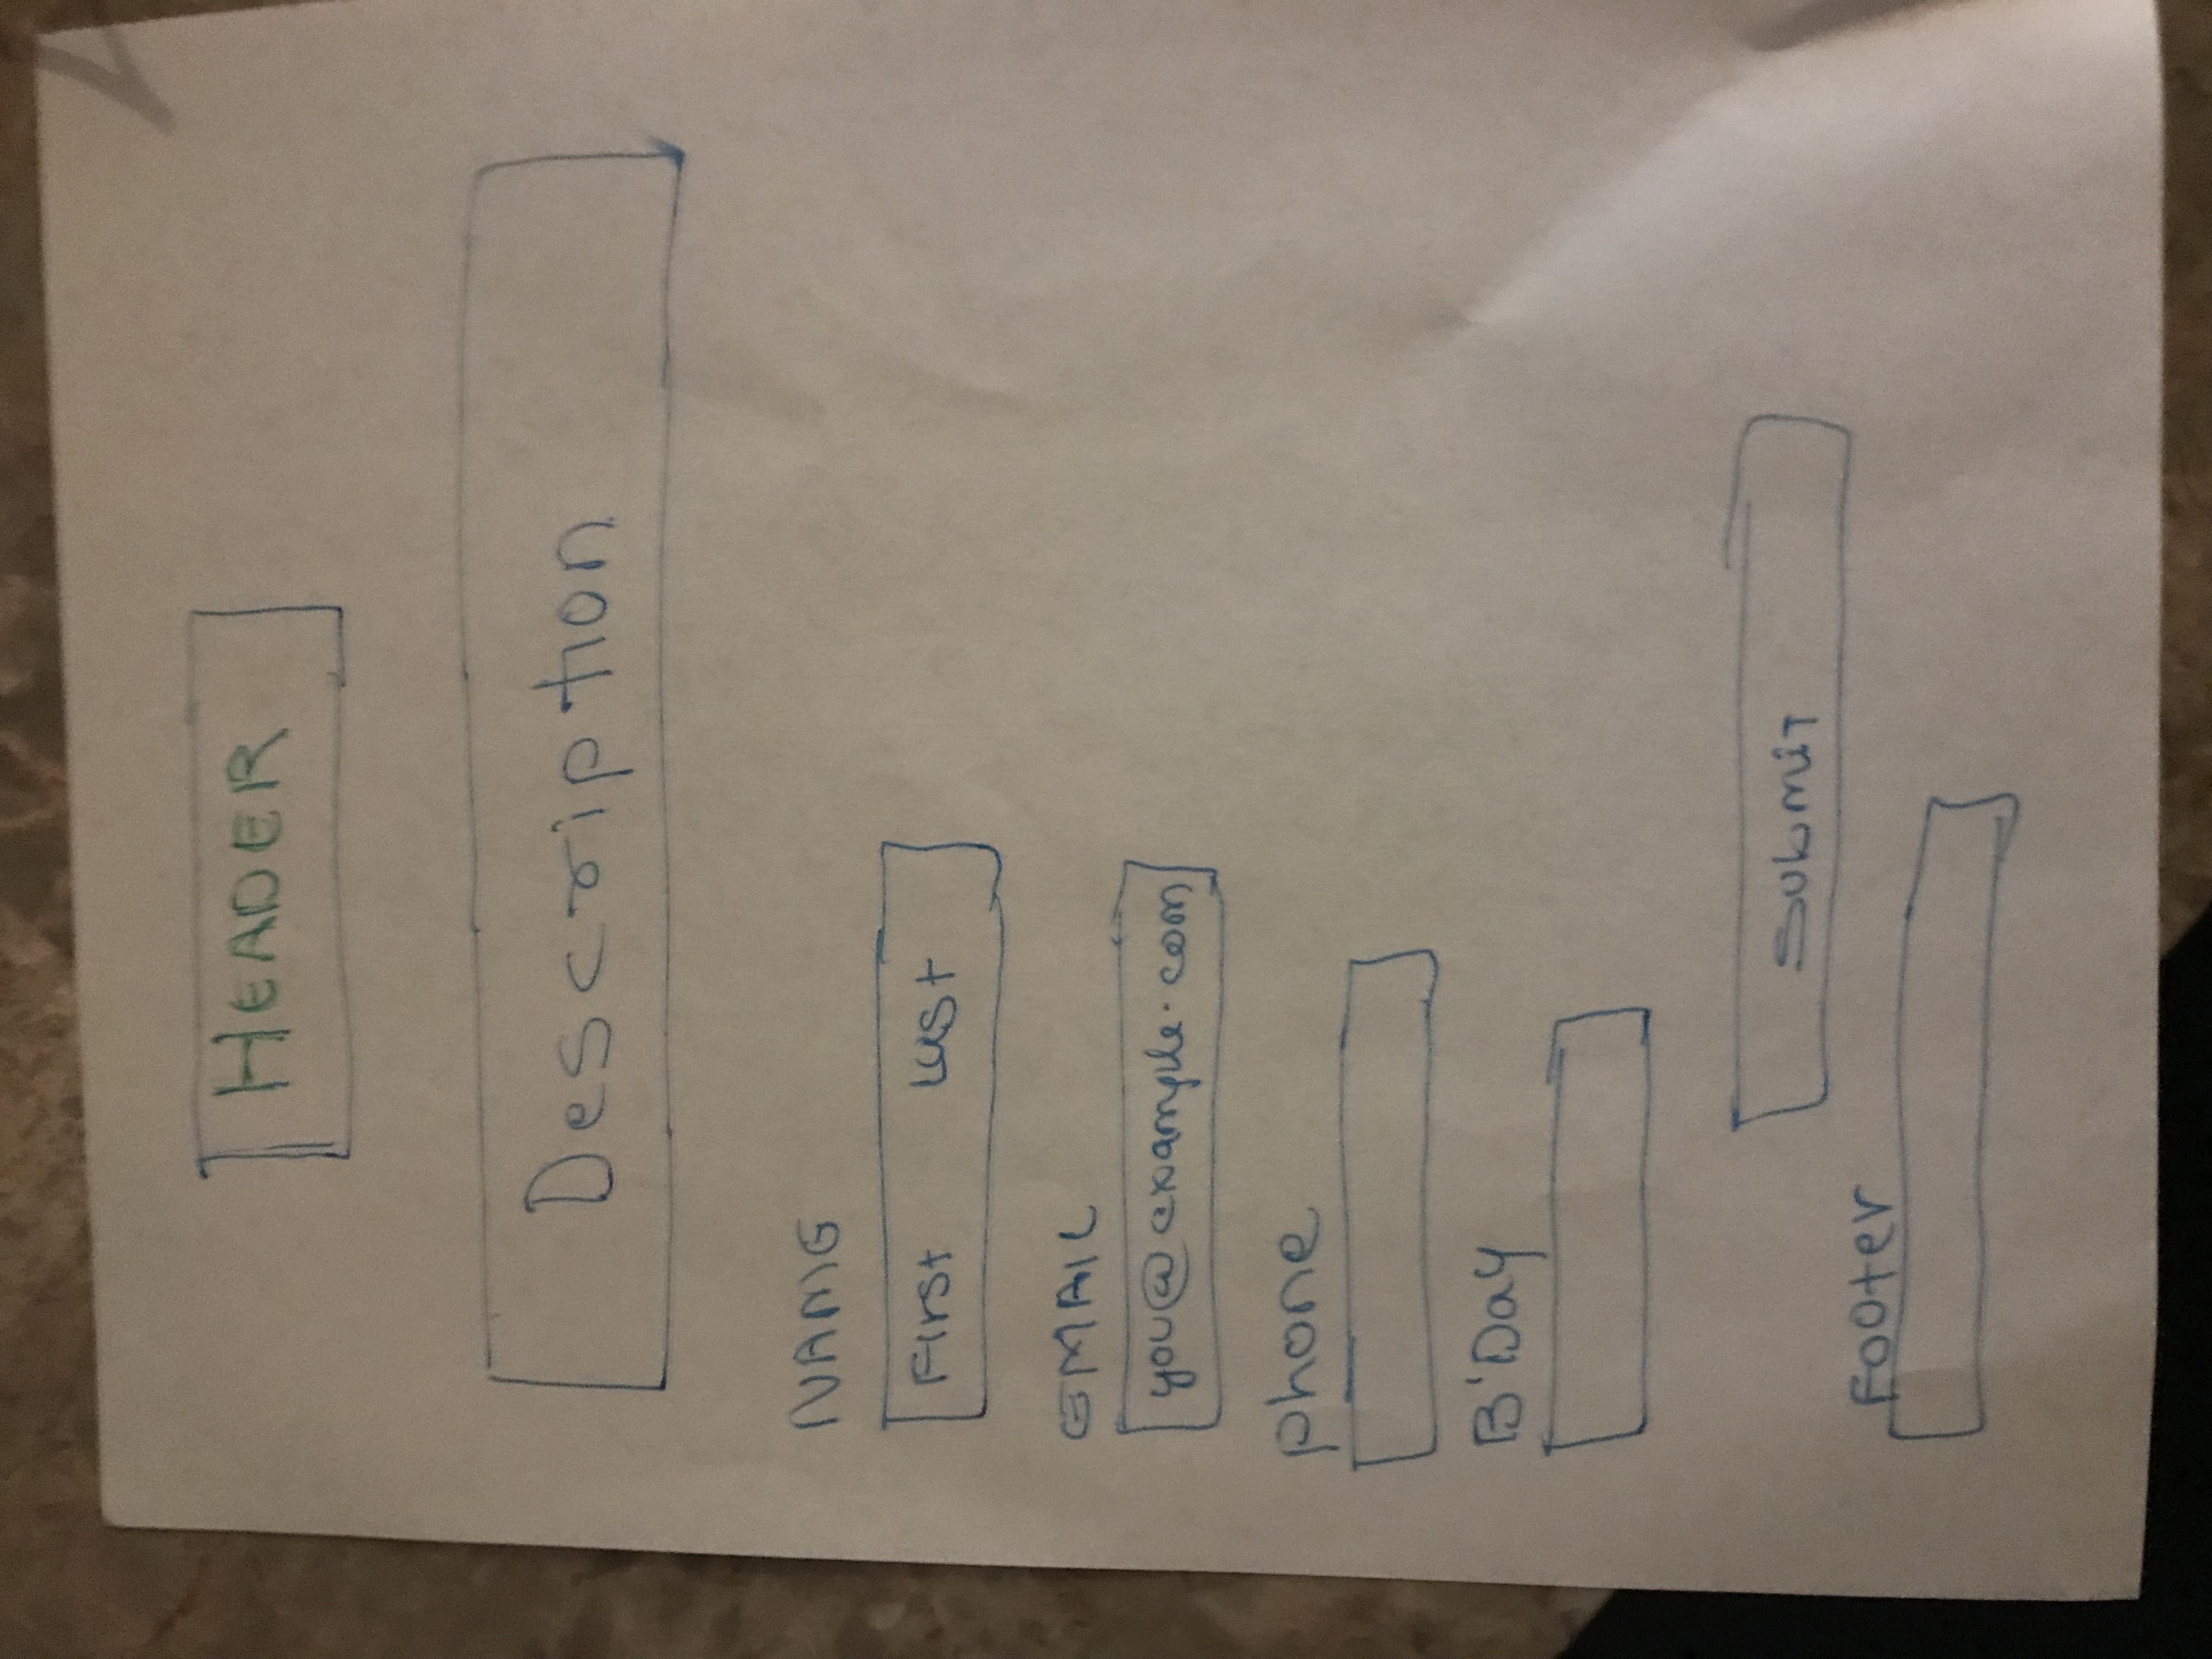 HEADER
Description
NAME
First Last
EMAIL
you@example.com
phone
B'Day
Submit
Footer